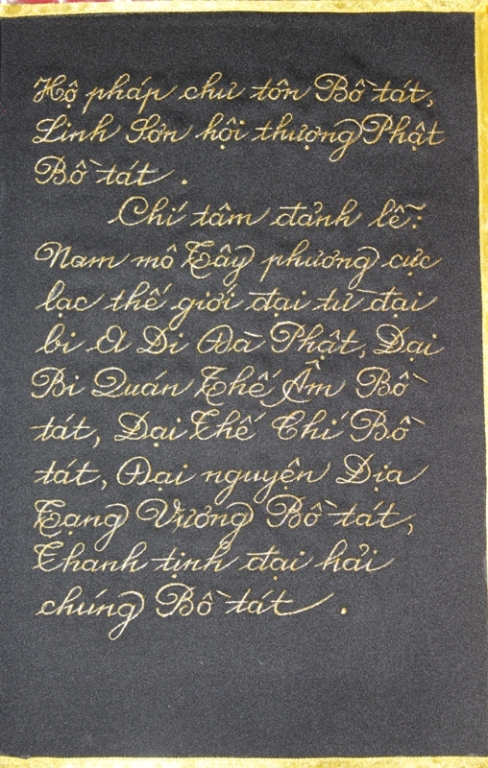 Hộ pháp chư tôn Bồ tát,
Linh Sơn hội thượng Phật
Bồ tát.
Chí tâm đảnh lễ:
Nam mô Tây phương cực
lạc thế giới đại từ đại
bi A Di Đà Phật, Đại
Bi Quán Thế Âm Bồ
tát, Đại Thế Chí Bồ
tát, Đại nguyện Địa
Tạng Vương Bồ tát,
Thanh tịnh đại hải
chúng Bồ tát.